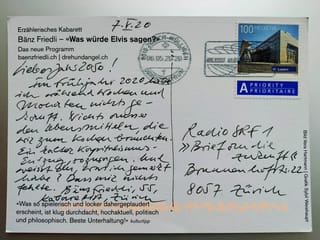 Erzählerisches Kabarett
Bänz Friedli – «Was würde Elvis sagen?»
Das neue Programm
baenzfriedli.ch | drehundangel.ch
7.V.20
Liebes Jahr 2050!
Im Frühjahr 2020 habe
ich während Wochen und
Monaten nichts ge-
kauft. Nichts ausser
den Lebensmitteln, die
wir zum Kochen brauchten.
Ein kalter Kapitalismus-
Entzug sozusagen. Und
weisst du, was ich gemerkt
habe? Dass mir nichts
fehlte. Bänz Friedli, 55,
Kabarettist, Zürich
«Was so spielerisch und locker dahergeplaudert
erscheint, ist klug durchdacht, hochaktuell, politisch
und philosophisch. Beste Unterhaltung!» kulturtipp
100
HELVETIA
A PRIORITY
PRIORITAIRE
Radio SRF 1
»Brief an die
Zukunft«
Brunnenhofstr. 22
8057 Zürich